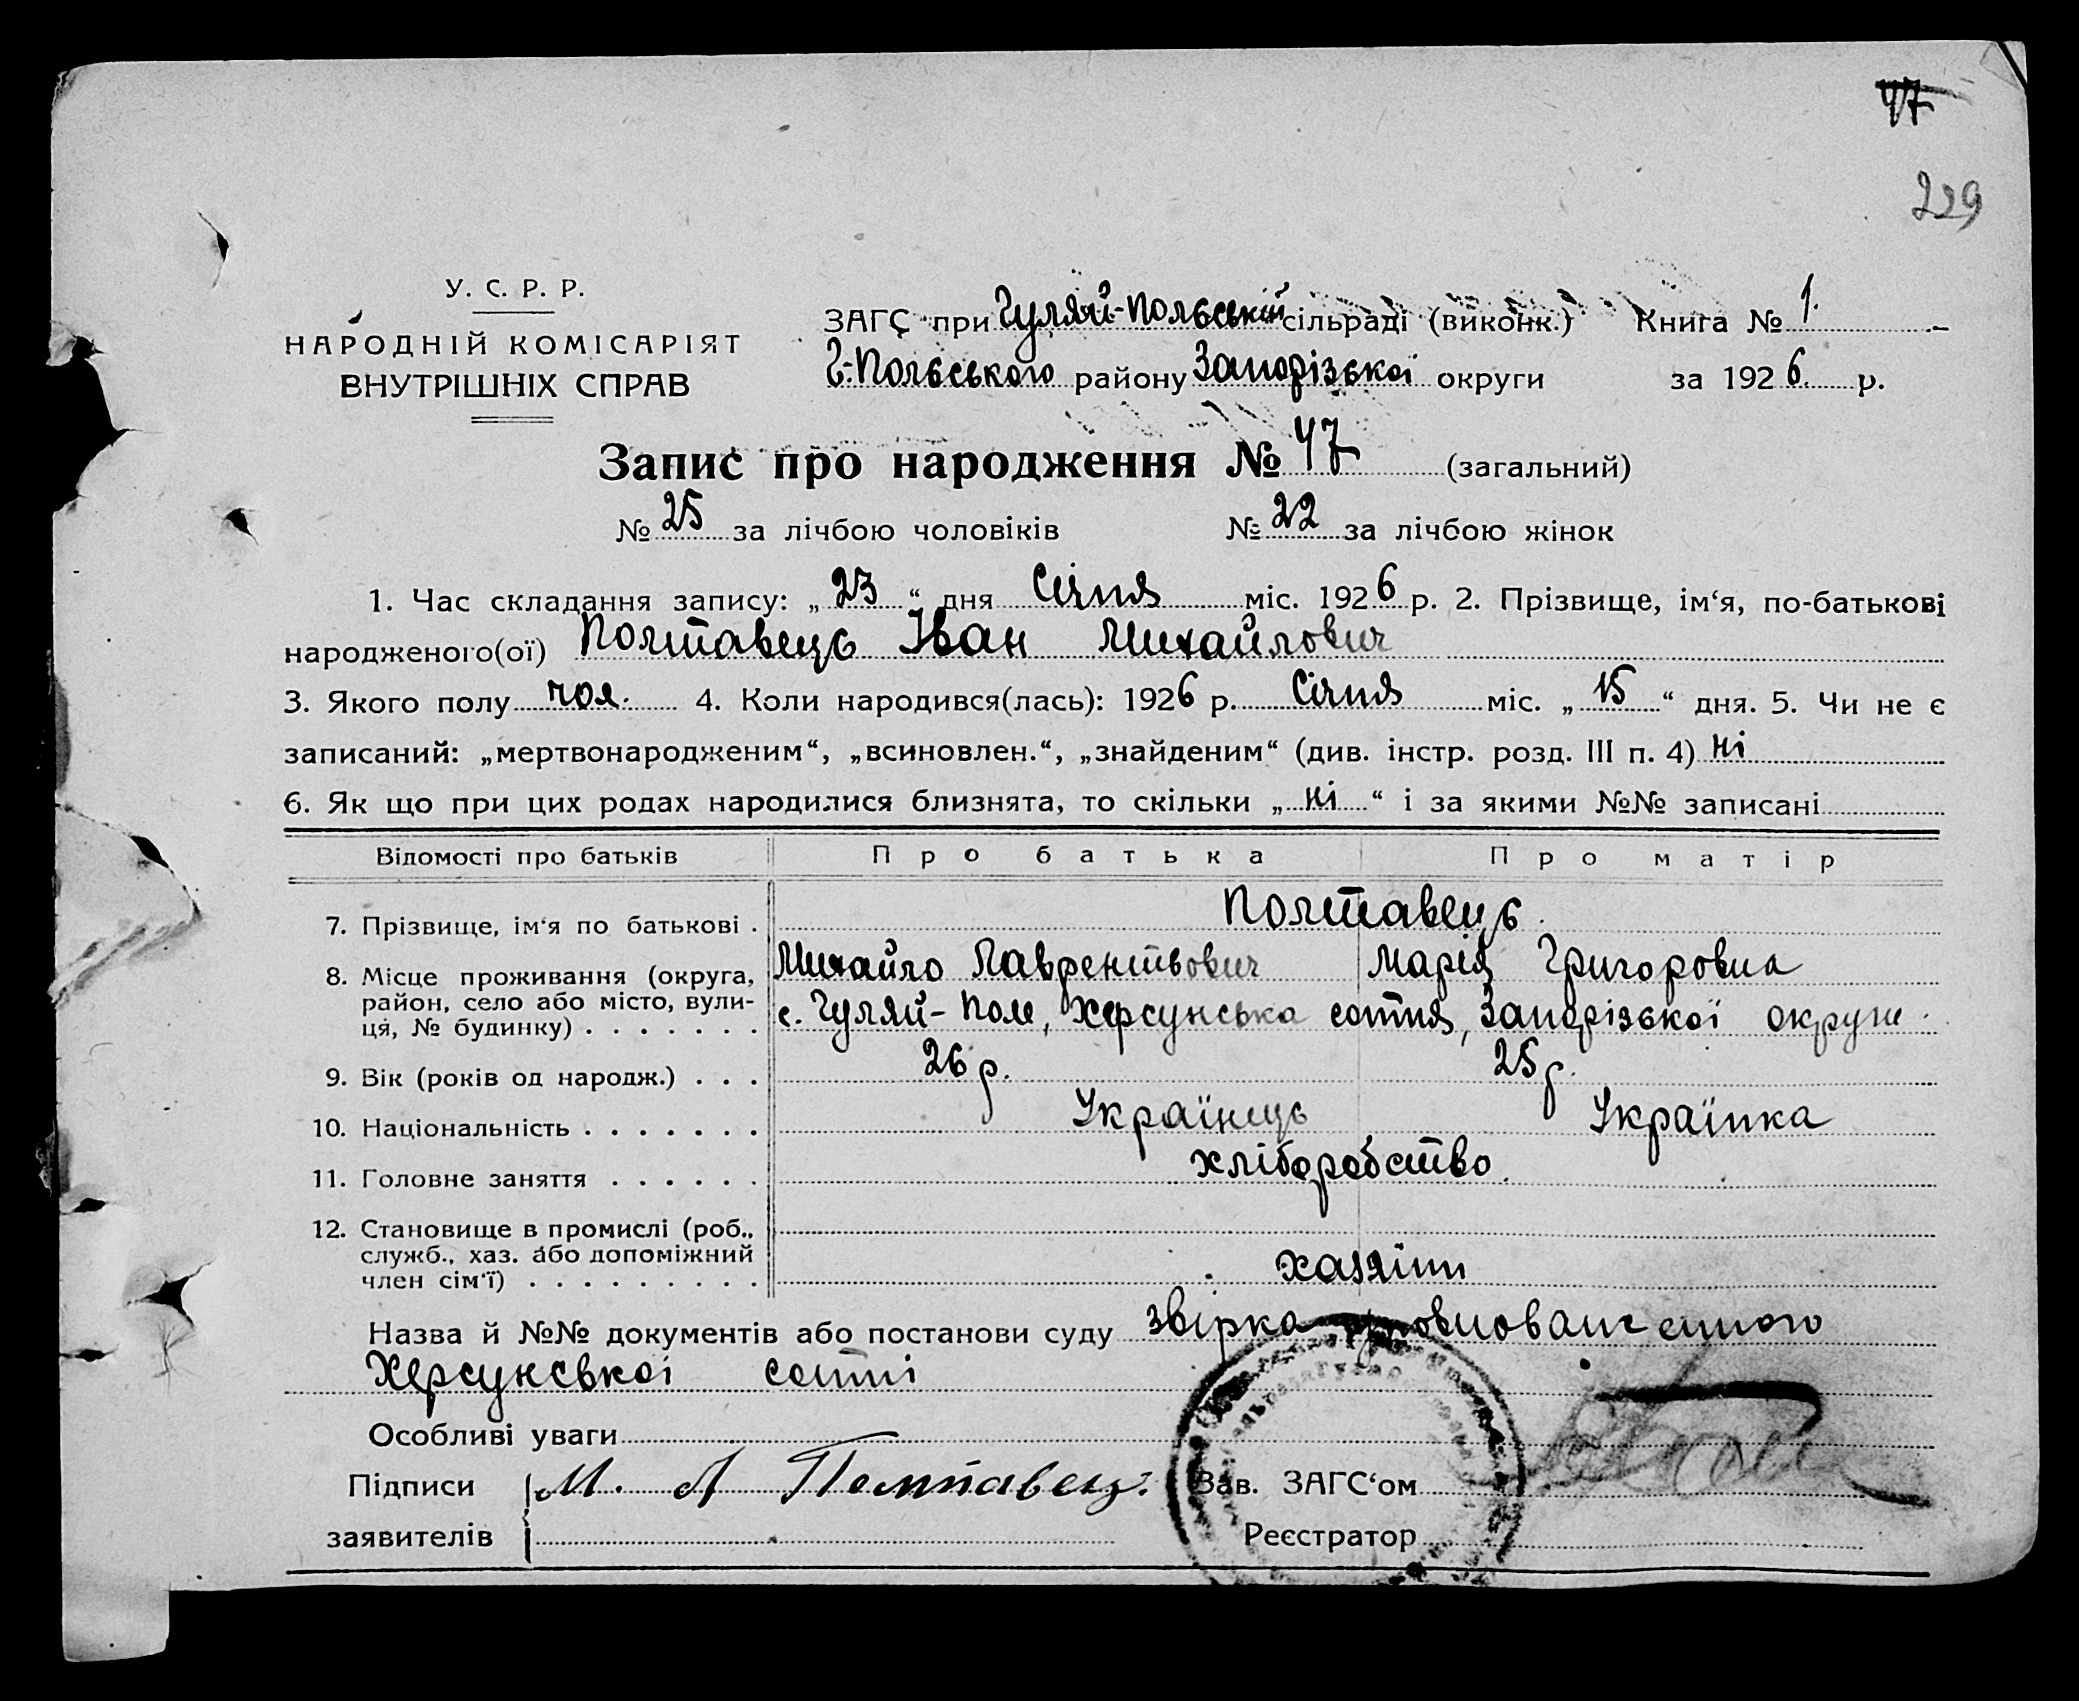 47
229
У. С. Р. Р.
НАРОДНІЙ КОМІСАРІЯТ
ВНУТРІШНІХ СПРАВ
ЗАГС при Гуляй-Польській сільраді (виконк.) Книга № 1.
Г-Польського району Запорізької округи за 1926 р.
Запис про народження № 47 (загальний)
№ 25 за лічбою чоловіків № 22 за лічбою жінок
1. Час складання запису: „23“ дня Січня міс. 1926 р. 2. Прізвище, ім‘я, по-батькові
народженого(ої) Полтавець Іван Михайлович
3. Якого полу чол. 4. Коли народився(лась): 1926 р. Січня міс. „15“ дня. 5. Чи не є
записаний: „мертвонародженим“, „всиновлен.“, „знайденим“ (див. інстр. розд. III п. 4) ні
6. Як що при цих родах народилися близнята, то скільки „ні“ і за якими №№ записані
Відомості про батьків Про батька Про матір
Полтавець.
7. Прізвище, ім‘я по батькові .
Михайло Лаврентьович Марія Григоровна
8. Місце проживання (округа,
район, село або місто, вули-
ця, № будинку) . . . . . . .
с. Гуляй-Поле, Херсунська сотня, Запорізської округи.
9. Вік (років од народж.) . . . 26 р. 25 р.
10. Національність . . . . . . . Українець Українка
11. Головне заняття . . . . . . хліборобство.
12. Становище в промислі (роб.,
служб., хаз. або допоміжний
член сім‘ї) . . . . . . . . . . хазяїни
Назва й №№ документів або постанови суду звірка
Херсунської сотні
Особливі уваги
Підписи М. Л Полтавець. Зав. ЗАГС‘ом
заявителів Реєстратор